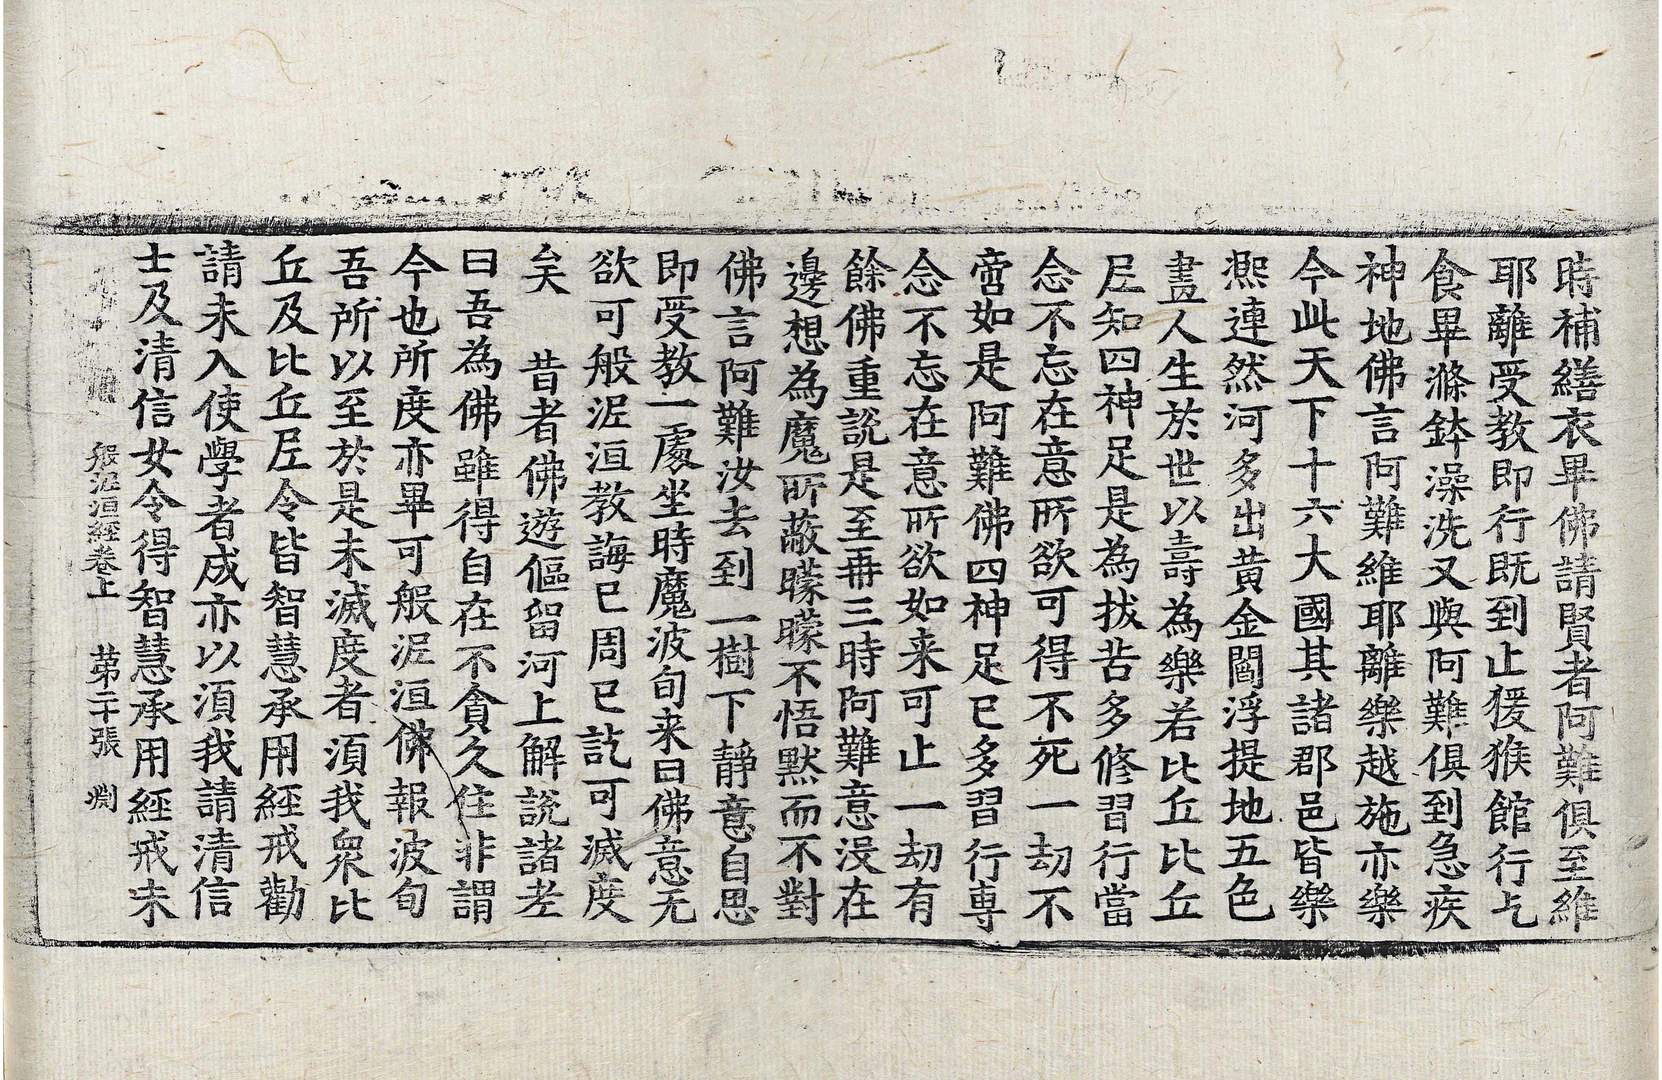 時補繕衣畢佛請賢者阿難俱至維
耶離受教即行既到止猨猴館行乞
食畢滌鉢澡洗又與阿難俱到急疾
神地佛言阿難維耶離樂越施亦樂
今此天下十六大國其諸郡邑皆樂
熈連然河多出黄金閻浮提地五色
畫人生於世以壽為樂若比丘比丘
𡰱知四神足是為拔苦多修習行當
念不忘在意所欲可得不死一劫不
啻如是阿難佛四神足已多習行專
念不忘在意所欲如来可止一劫有
餘佛重說是至再三時阿難意没在
邊想為魔所蔽矇矇不悟黙而不對
佛言阿難汝去到一樹下靜意自思
即受教一處坐時魔波旬来曰佛意无
欲可般泥洹教誨已周已訖可滅度
矣　昔者佛遊傴留河上解說諸老
曰吾為佛雖得自在不貪久住非謂
今也所度亦畢可般泥洹佛報波旬
吾所以至於是未滅度者須我衆比
丘及比丘𡰱令皆智慧承用經戒勸
請未入使學者成亦以須我請清信
士及清信女令得智慧承用經戒未
般泥洹經卷上　第二十張　渕